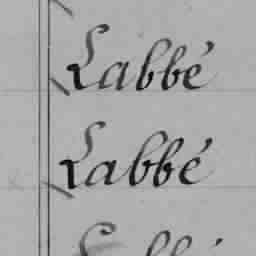 Labbé
Labbé